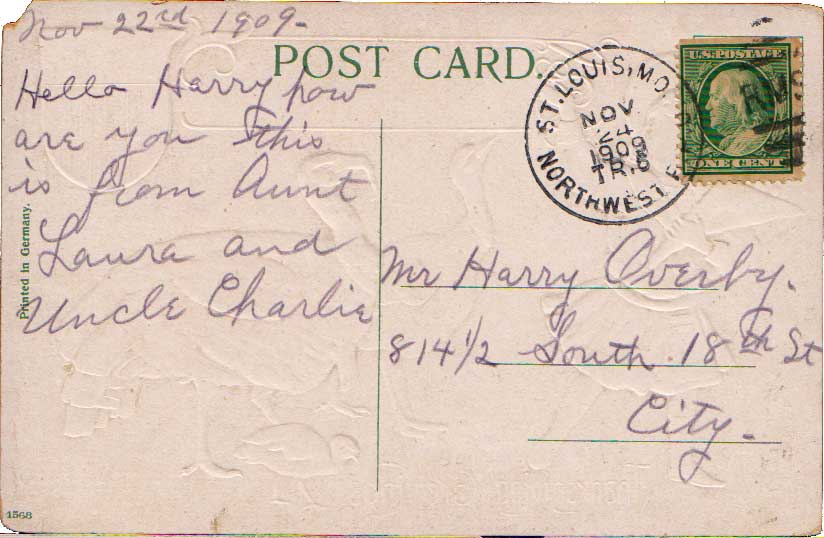 Nov 22nd 1909-
POST CARD.
Hello Harry how
are you this
is from Aunt
Laura and
Uncle Charlie
Printed in Germany.
1568
ST. LOUIS, MO.
NOV
24
1909
TR. 6
NORTHWEST
RMS
U.S. POSTAGE
ONE CENT
Mr Harry Overby.
814 1/2 South 18th St
City.